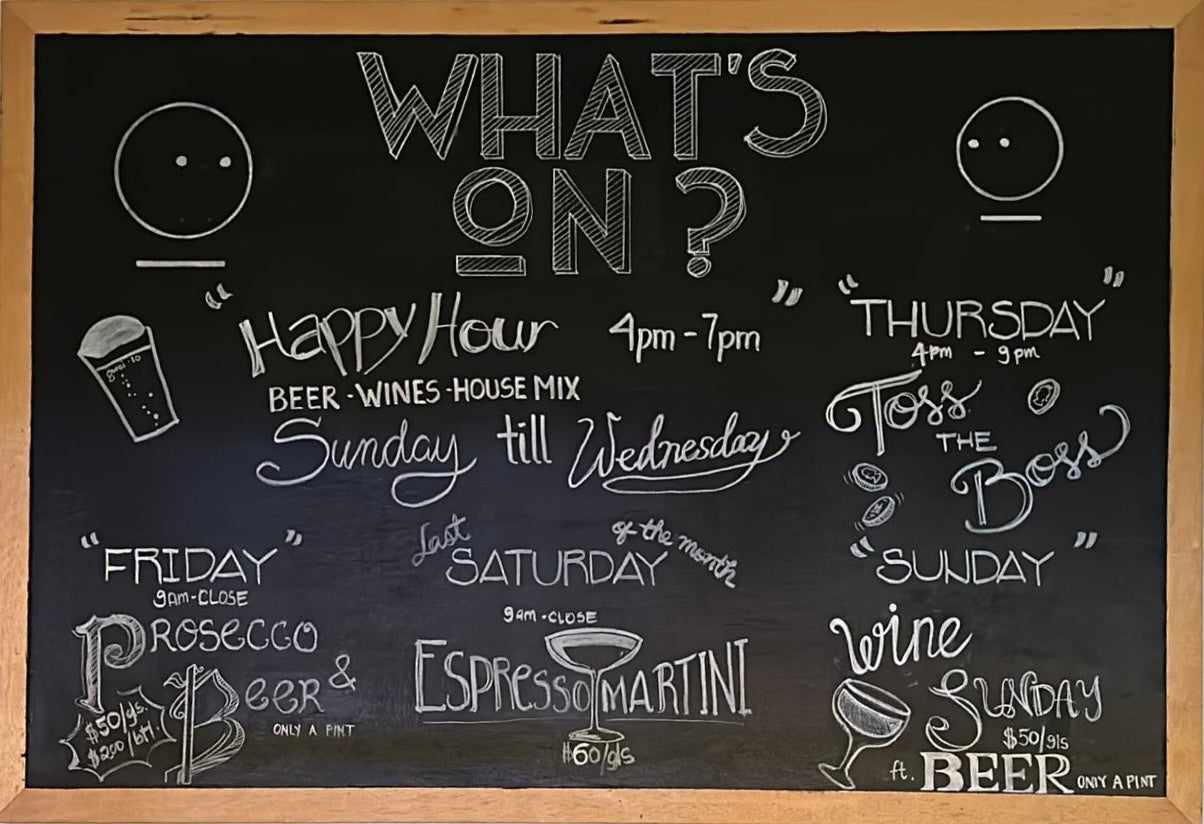 WHAT'S
ON?
"Happy Hour 4pm - 7pm"
BEER · WINES · HOUSE MIX
Sunday till Wednesday
"THURSDAY"
4pm - 9pm
Toss
THE
Boss
"FRIDAY"
9am-CLOSE
PROSECCO
& BEER
ONLY A PINT
$50/gls.
$200/btl.
Last SATURDAY of the month
9am-CLOSE
ESPRESSO MARTINI
$60/gls
"SUNDAY"
Wine
SUNDAY
$50/gls
ft. BEER ONLY A PINT